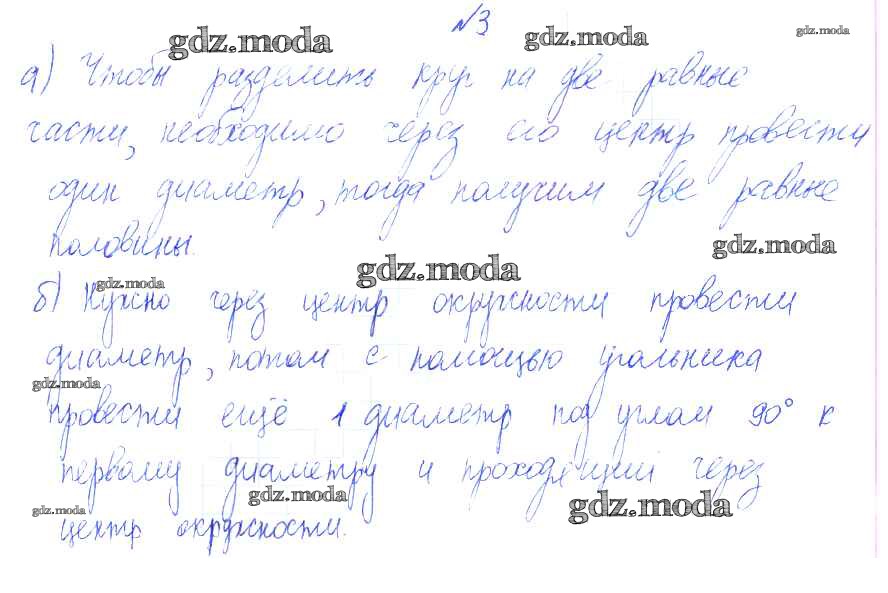 №3
а) Чтобы разделить круг на две равные
части, необходимо через его центр провести
один диаметр, тогда получим две равные
половины.
б) Нужно через центр окружности провести
диаметр, потом с помощью угольника
провести ещё 1 диаметр под углом 90° к
первому диаметру и проходящий через
центр окружности.
gdz.moda
gdz.moda
gdz.moda
gdz.moda
gdz.moda
gdz.moda
gdz.moda
gdz.moda
gdz.moda
gdz.moda